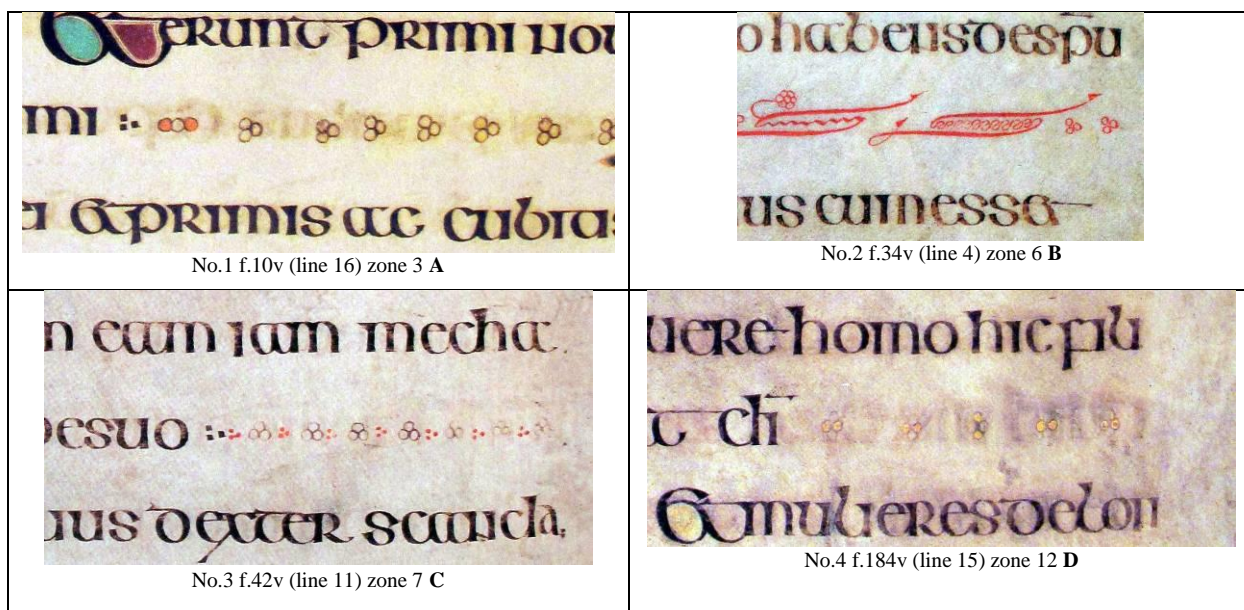 &erunt primi nou
mi
i &primis ac cubitus
No.1 f.10v (line 16) zone 3 A
o habens despu
us cum ess&
No.2 f.34v (line 4) zone 6 B
n eam iam mecha
esuo
uus dexter scanda,
No.3 f.42v (line 11) zone 7 C
uere homo hic filiu
t di
&mulieres delon
No.4 f.184v (line 15) zone 12 D